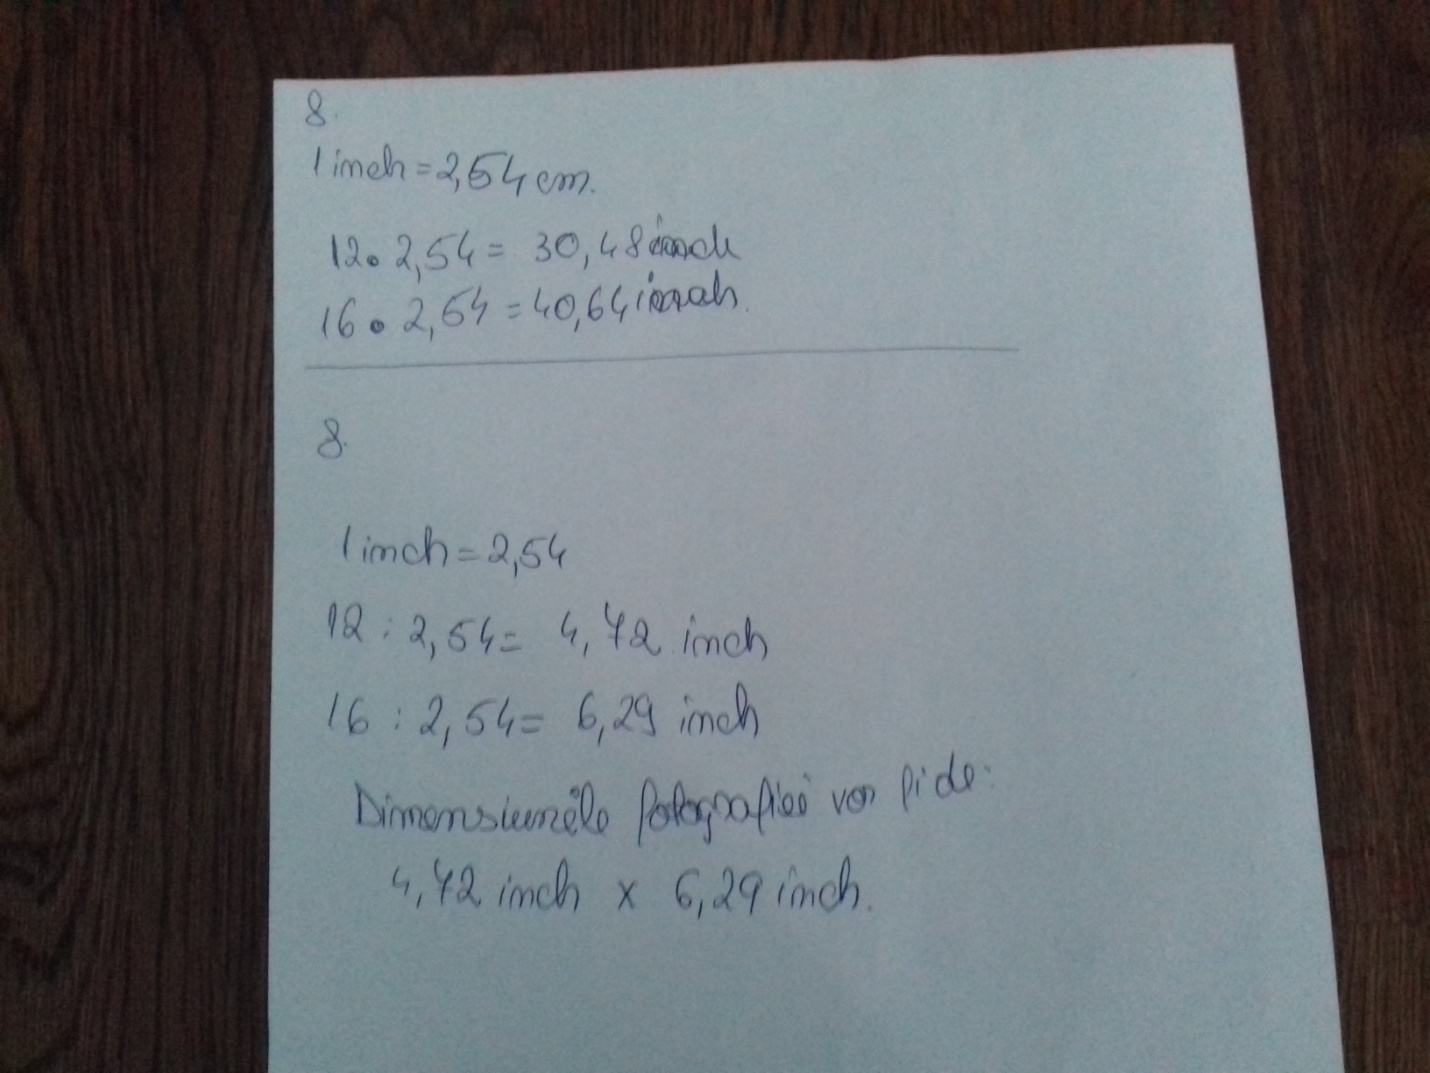 8.
1 inch = 2,54 cm.
12 • 2,54 = 30,48 inch
16 • 2,54 = 40,64 inch.
8.
1 inch = 2,54
12 : 2,54 = 4,72 inch
16 : 2,54 = 6,29 inch
Dimensiunile fotografiei vor fi de:
4,72 inch x 6,29 inch.